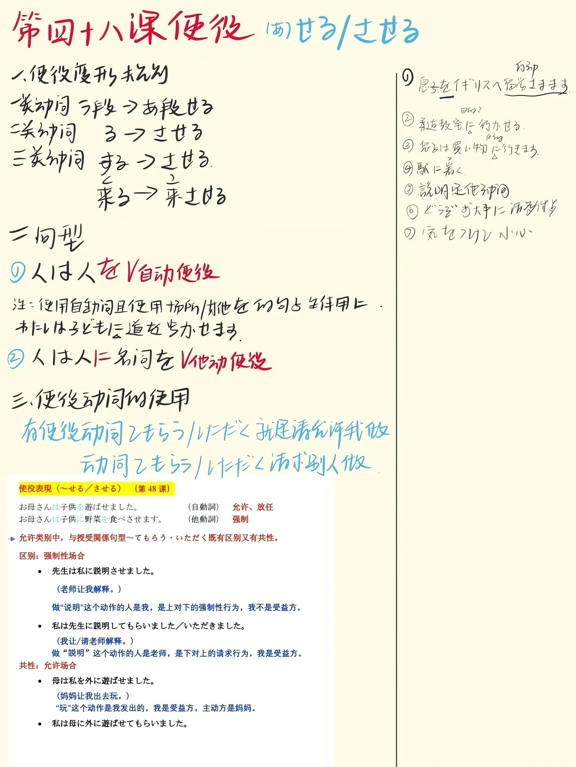 第四十八课使役 (あ)せる/させる
一.使役变形规则
一类动词 う段→あ段せる
二类动词 る→させる
三类动词 する→させる.
来る→来させる
二句型
① 人は人をV自动使役
注:使用自动词且使用场所/其他を的句子生使用に.
わたしは子どもに道を歩かせます.
② 人は人に名词をV他动使役
三.使役动词的使用
有使役动词てもらう/いただく就是请允许我做
动词てもらう/いただく请求别人做.
使役表現（～せる／させる）（第 48 课）
お母さんは子供を遊ばせました。 （自動詞） 允许、放任
お母さんは子供に野菜を食べさせます。 （他動詞） 强制
允许类别中，与授受関係句型～てもらう・いただく既有区别又有共性。
区别：强制性场合
• 先生は私に説明させました。
（老师让我解释。）
做"说明"这个动作的人是我，是上对下的强制性行为，我不是受益方。
• 私は先生に説明してもらいました／いただきました。
（我让/请老师解释。）
做"説明"这个动作的人是老师，是下对上的请求行为，我是受益方。
共性：允许场合
• 母は私を外に遊ばせました。
（妈妈让我出去玩。）
"玩"这个动作是我发出的，我是受益方，主动方是妈妈。
• 私は母に外に遊ばせてもらいました。
自动
① 息子をイギリスへ留学させます.
② 柔道教室に行かせる.
③ 買い物に行きます.
④ 駅に着く
⑤ 説明是他动词
⑥ どうぞお大事に
⑦ 気をつけて 小心